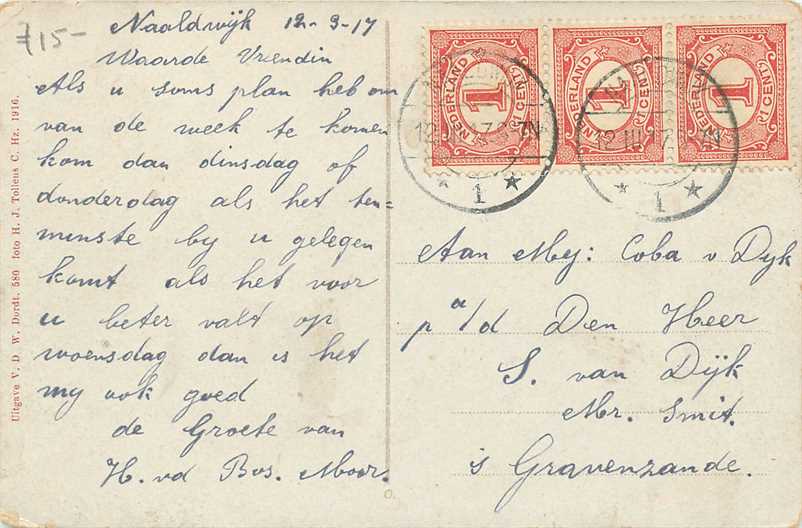 £15-
Naaldwijk 12-3-17
Waarde Vriendin
Als u soms plan heb om
van de week te komen
kom dan dinsdag of
donderdag als het ten=
minste by u gelegen
komt als het voor
u beter valt op
woensdag dan is het
my ook goed
de Groete van
H. vd Bos. Moer.
Uitgave V. D. W. Dordt. 580 foto H. J. Tollens C. Hz. 1916.
NEDERLAND 1 CENT
NEDERLAND 1 CENT
NEDERLAND 1 CENT
12 III 17 7N
1
12 III 17 7N
1
Aan Mej: Coba v Dyk
p a/d Den Heer
S. van Dijk
Mr. Smit.
's Gravenzande.